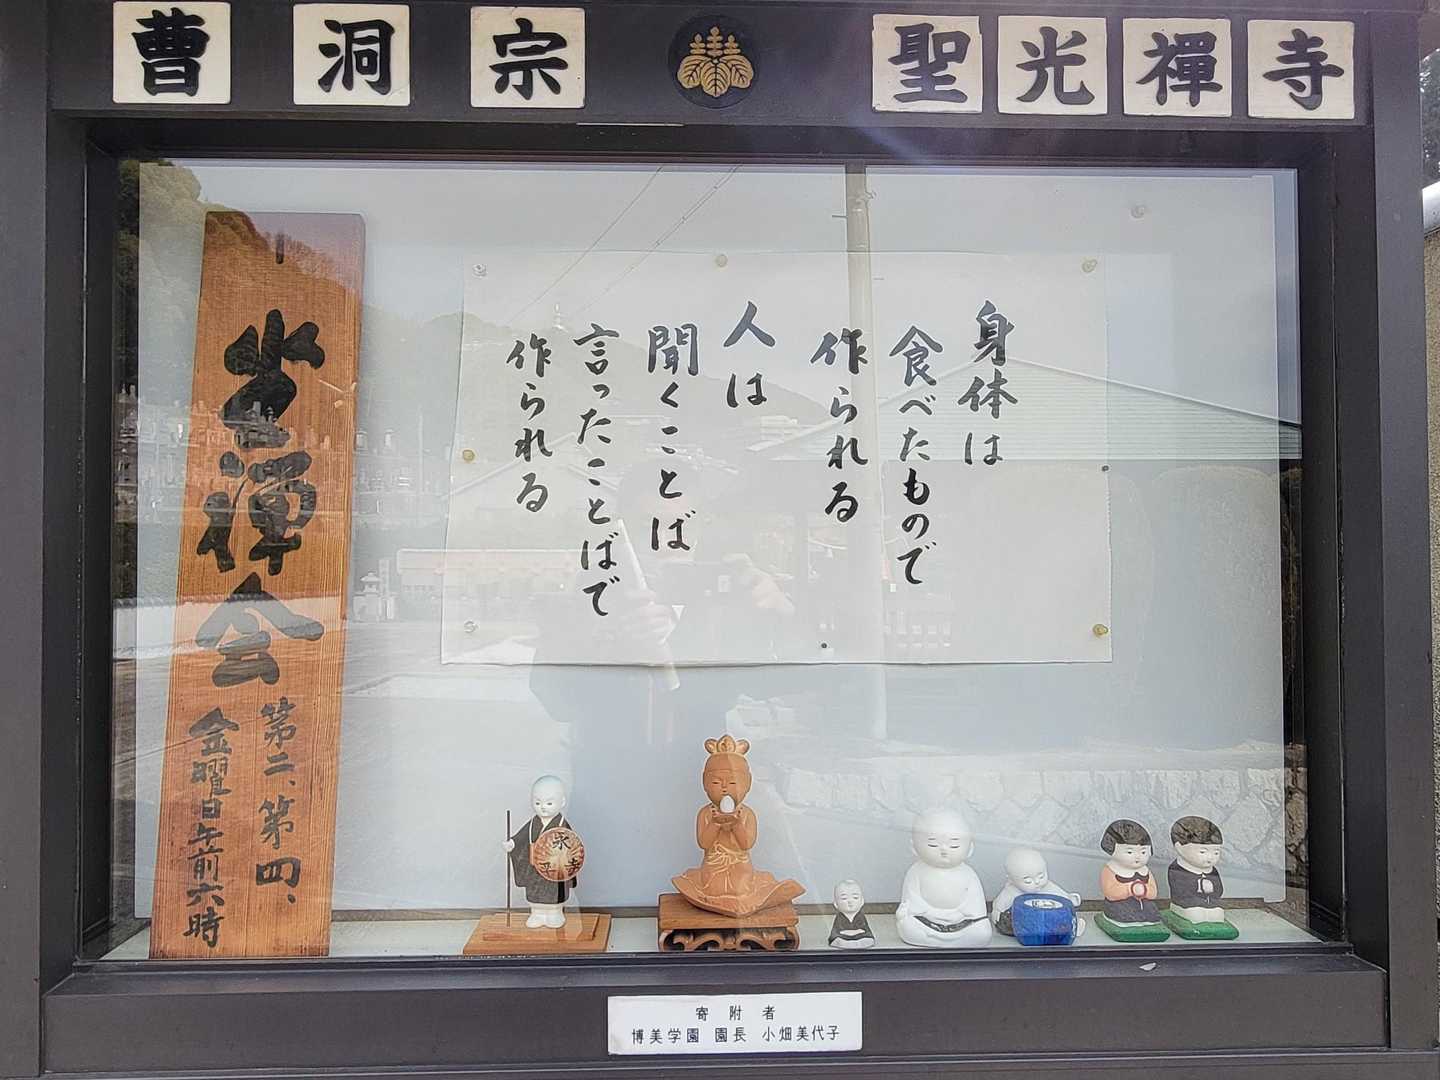 曹洞宗 聖光禪寺
身体は
食べたもので
作られる
人は
聞くことば
言ったことばで
作られる
坐禅会
第二、第四、
金曜日午前六時
永平寺
寄附者
博美学園 園長 小畑美代子